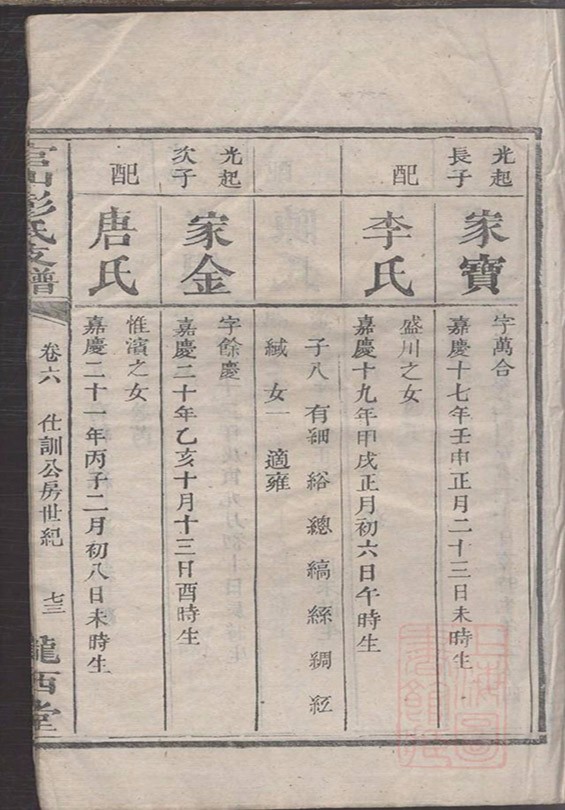 光起
長子
家寶
字萬合
嘉慶十七年壬申正月二十三日未時生
配
李氏
盛川之女
嘉慶十九年甲戌正月初六日午時生
子八 有細 綌 總 縞 絲 綢 紅
緘 女一 適雍
光起
次子
家金
字餘慶
嘉慶二十年乙亥十月十三日酉時生
配
唐氏
惟濱之女
嘉慶二十一年丙子二月初八日未時生
彭氏支譜
卷六 仕訓公房世紀 七三
隴西堂